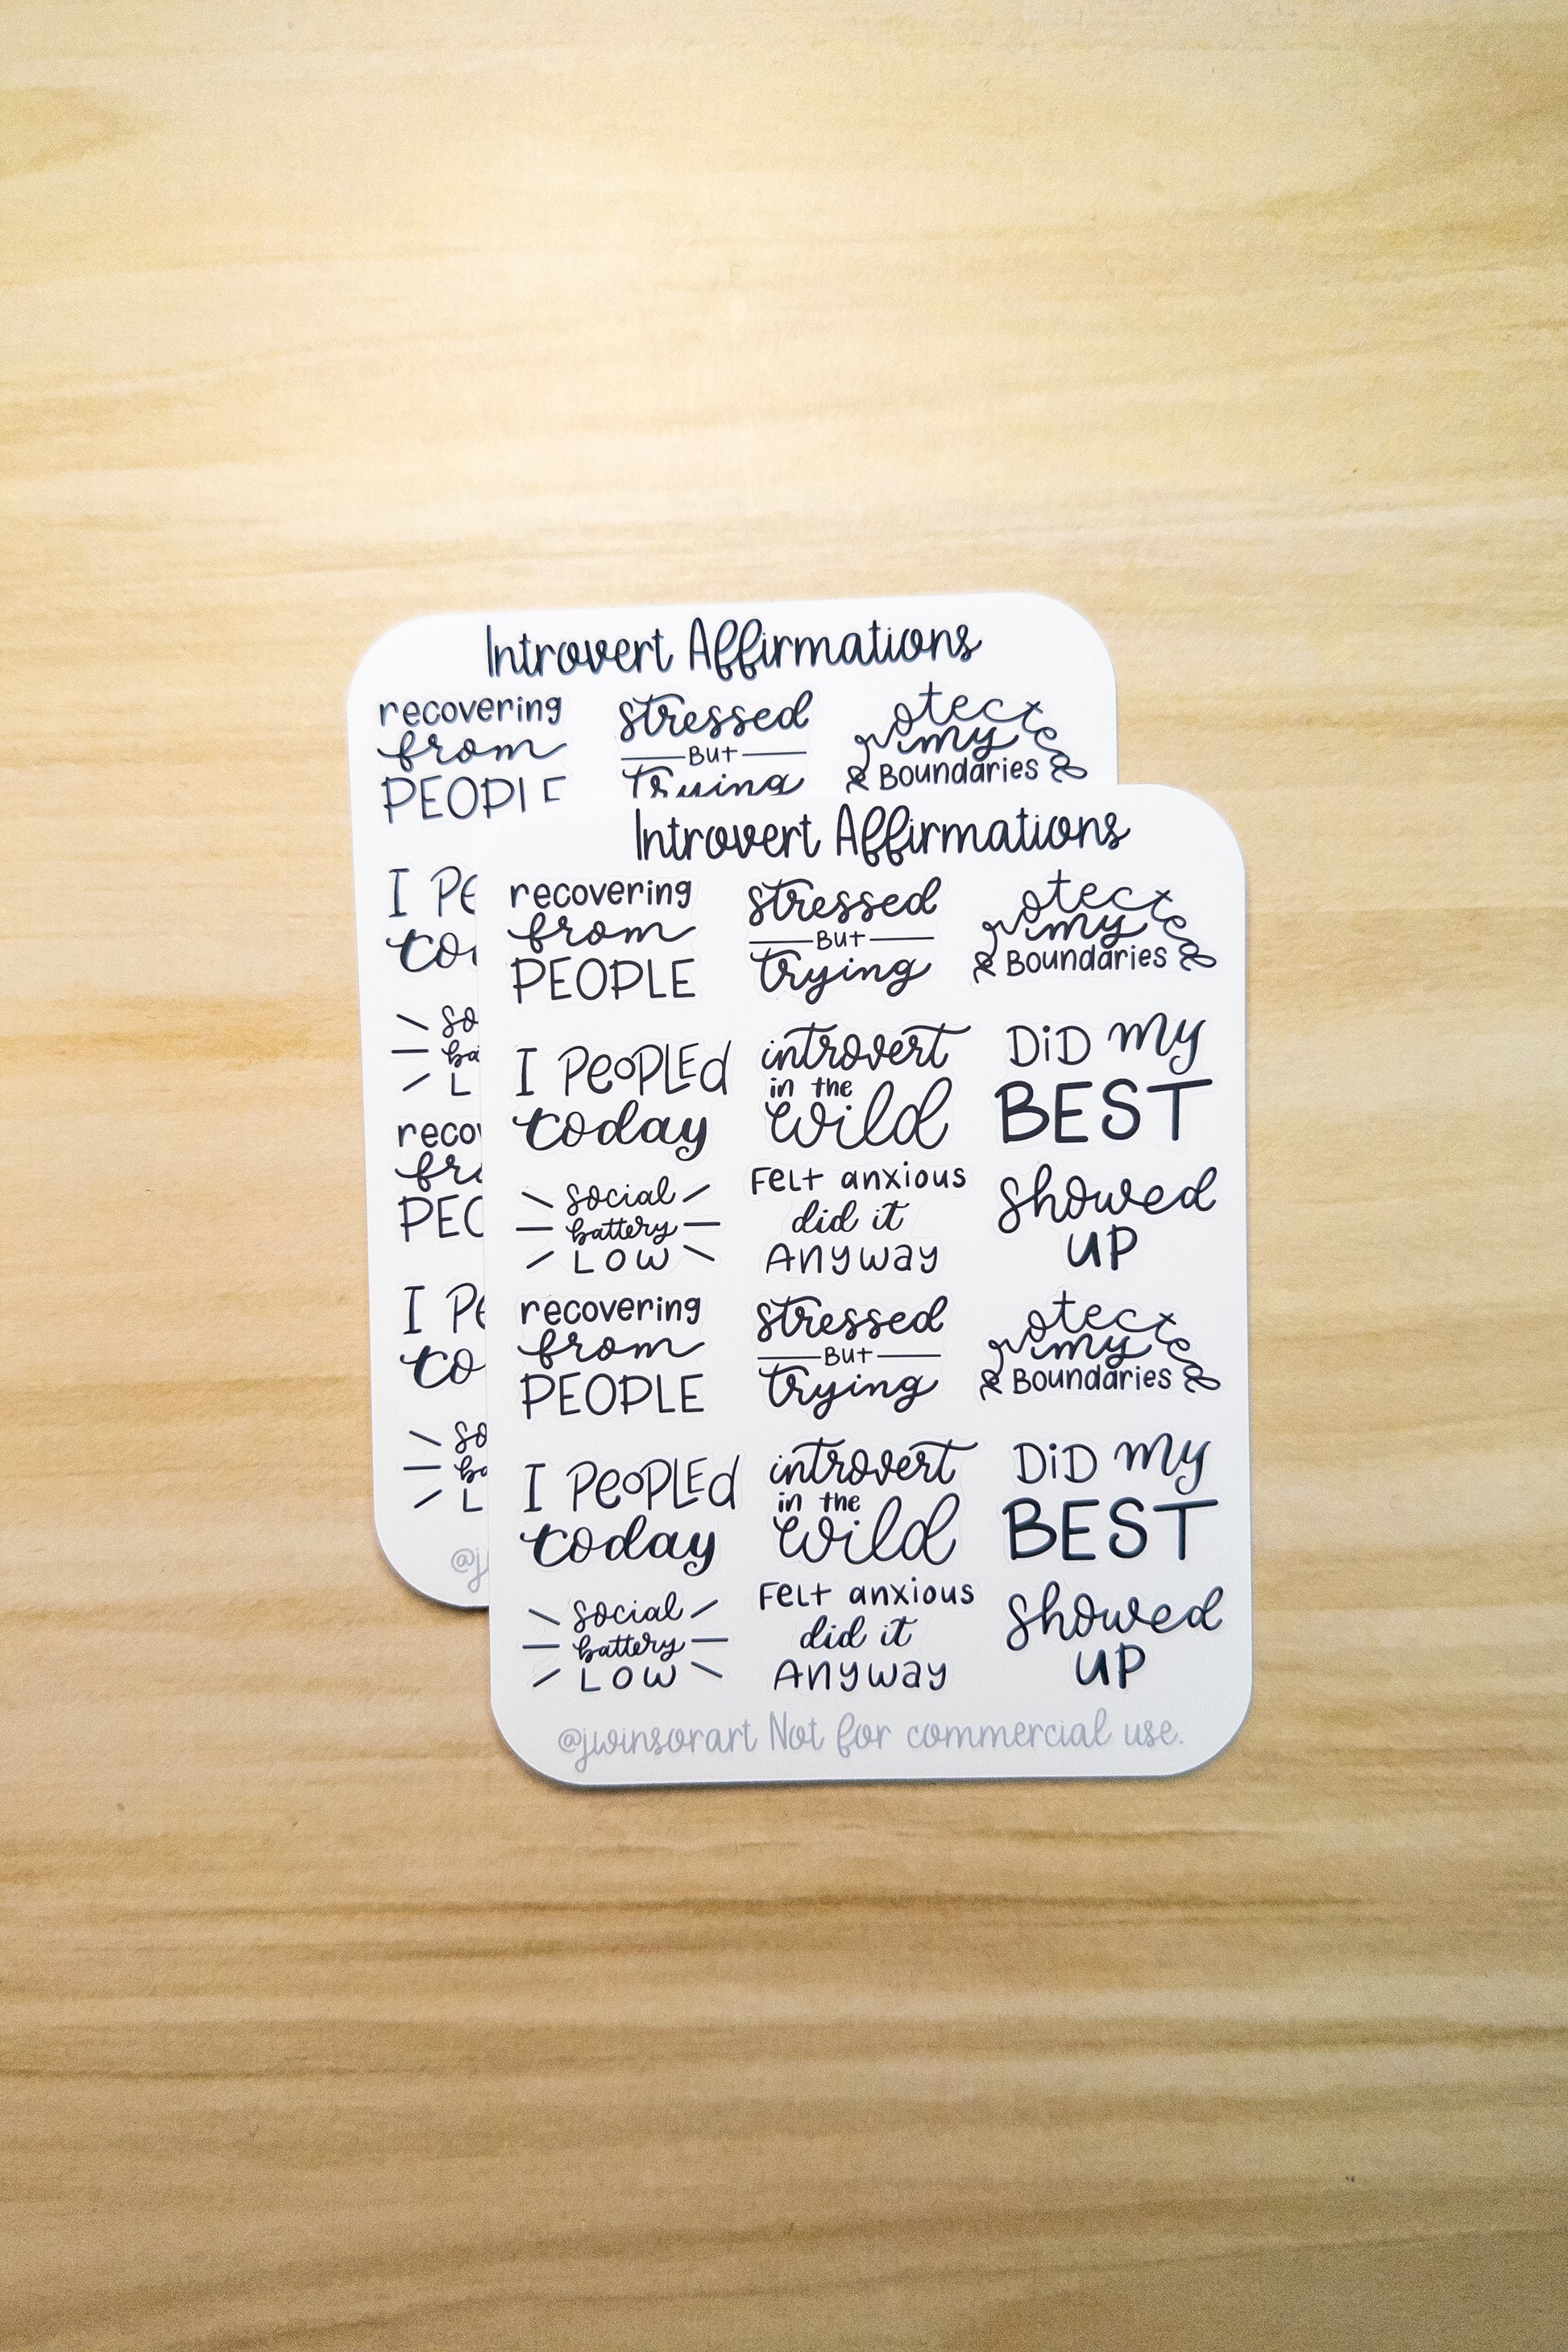 Introvert Affirmations
recovering
from
PEOPLE
stressed
But
trying
protected
my
Boundaries
I Pe
to
so
ba
L
reco
fr
PEO
I Pe
to
so
ba
L
@j
Introvert Affirmations
recovering
from
PEOPLE
stressed
But
trying
protected
my
Boundaries
I PeoPLEd
today
introvert
in the
wild
DiD my
BEST
social
battery
LOW
Felt anxious
did it
Anyway
showed
UP
recovering
from
PEOPLE
stressed
But
trying
protected
my
Boundaries
I PeoPLEd
today
introvert
in the
wild
DiD my
BEST
social
battery
LOW
Felt anxious
did it
Anyway
showed
UP
@jwinsorart Not for commercial use.